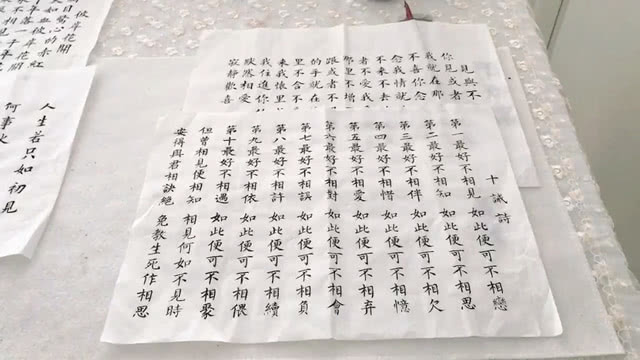 見與不
你見或者
我就在那
不來不去
那里不增
的手就在
來我懷里
我住進你
默然相愛
寂靜歡喜
十誡詩
第一最好不相見 如此便可不相戀
第二最好不相知 如此便可不相思
第三最好不相伴 如此便可不相欠
第四最好不相惜 如此便可不相憶
第五最好不相愛 如此便可不相弃
第六最好不相對 如此便可不相會
第七最好不相誤 如此便可不相負
第八最好不相許 如此便可不相續
第九最好不相依 如此便可不相偎
第十最好不相遇 如此便可不相聚
但曾相見便相知 相見何如不見時
安得與君相訣絕 免教生死作相思
人生若只如初見
何事
彼岸花開